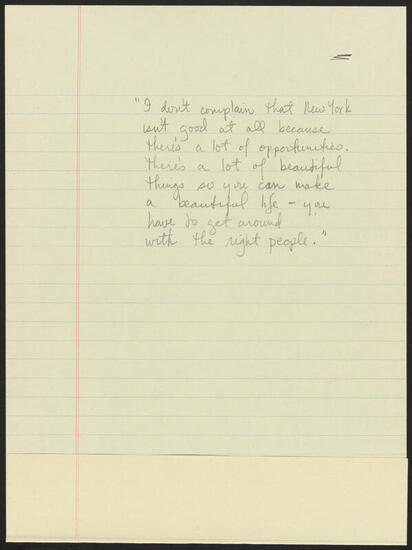 "I don't complain that New York
isn't good at all because
there's a lot of opportunities.
There's a lot of beautiful
things so you can make
a beautiful life – you
have to get around
with the right people."